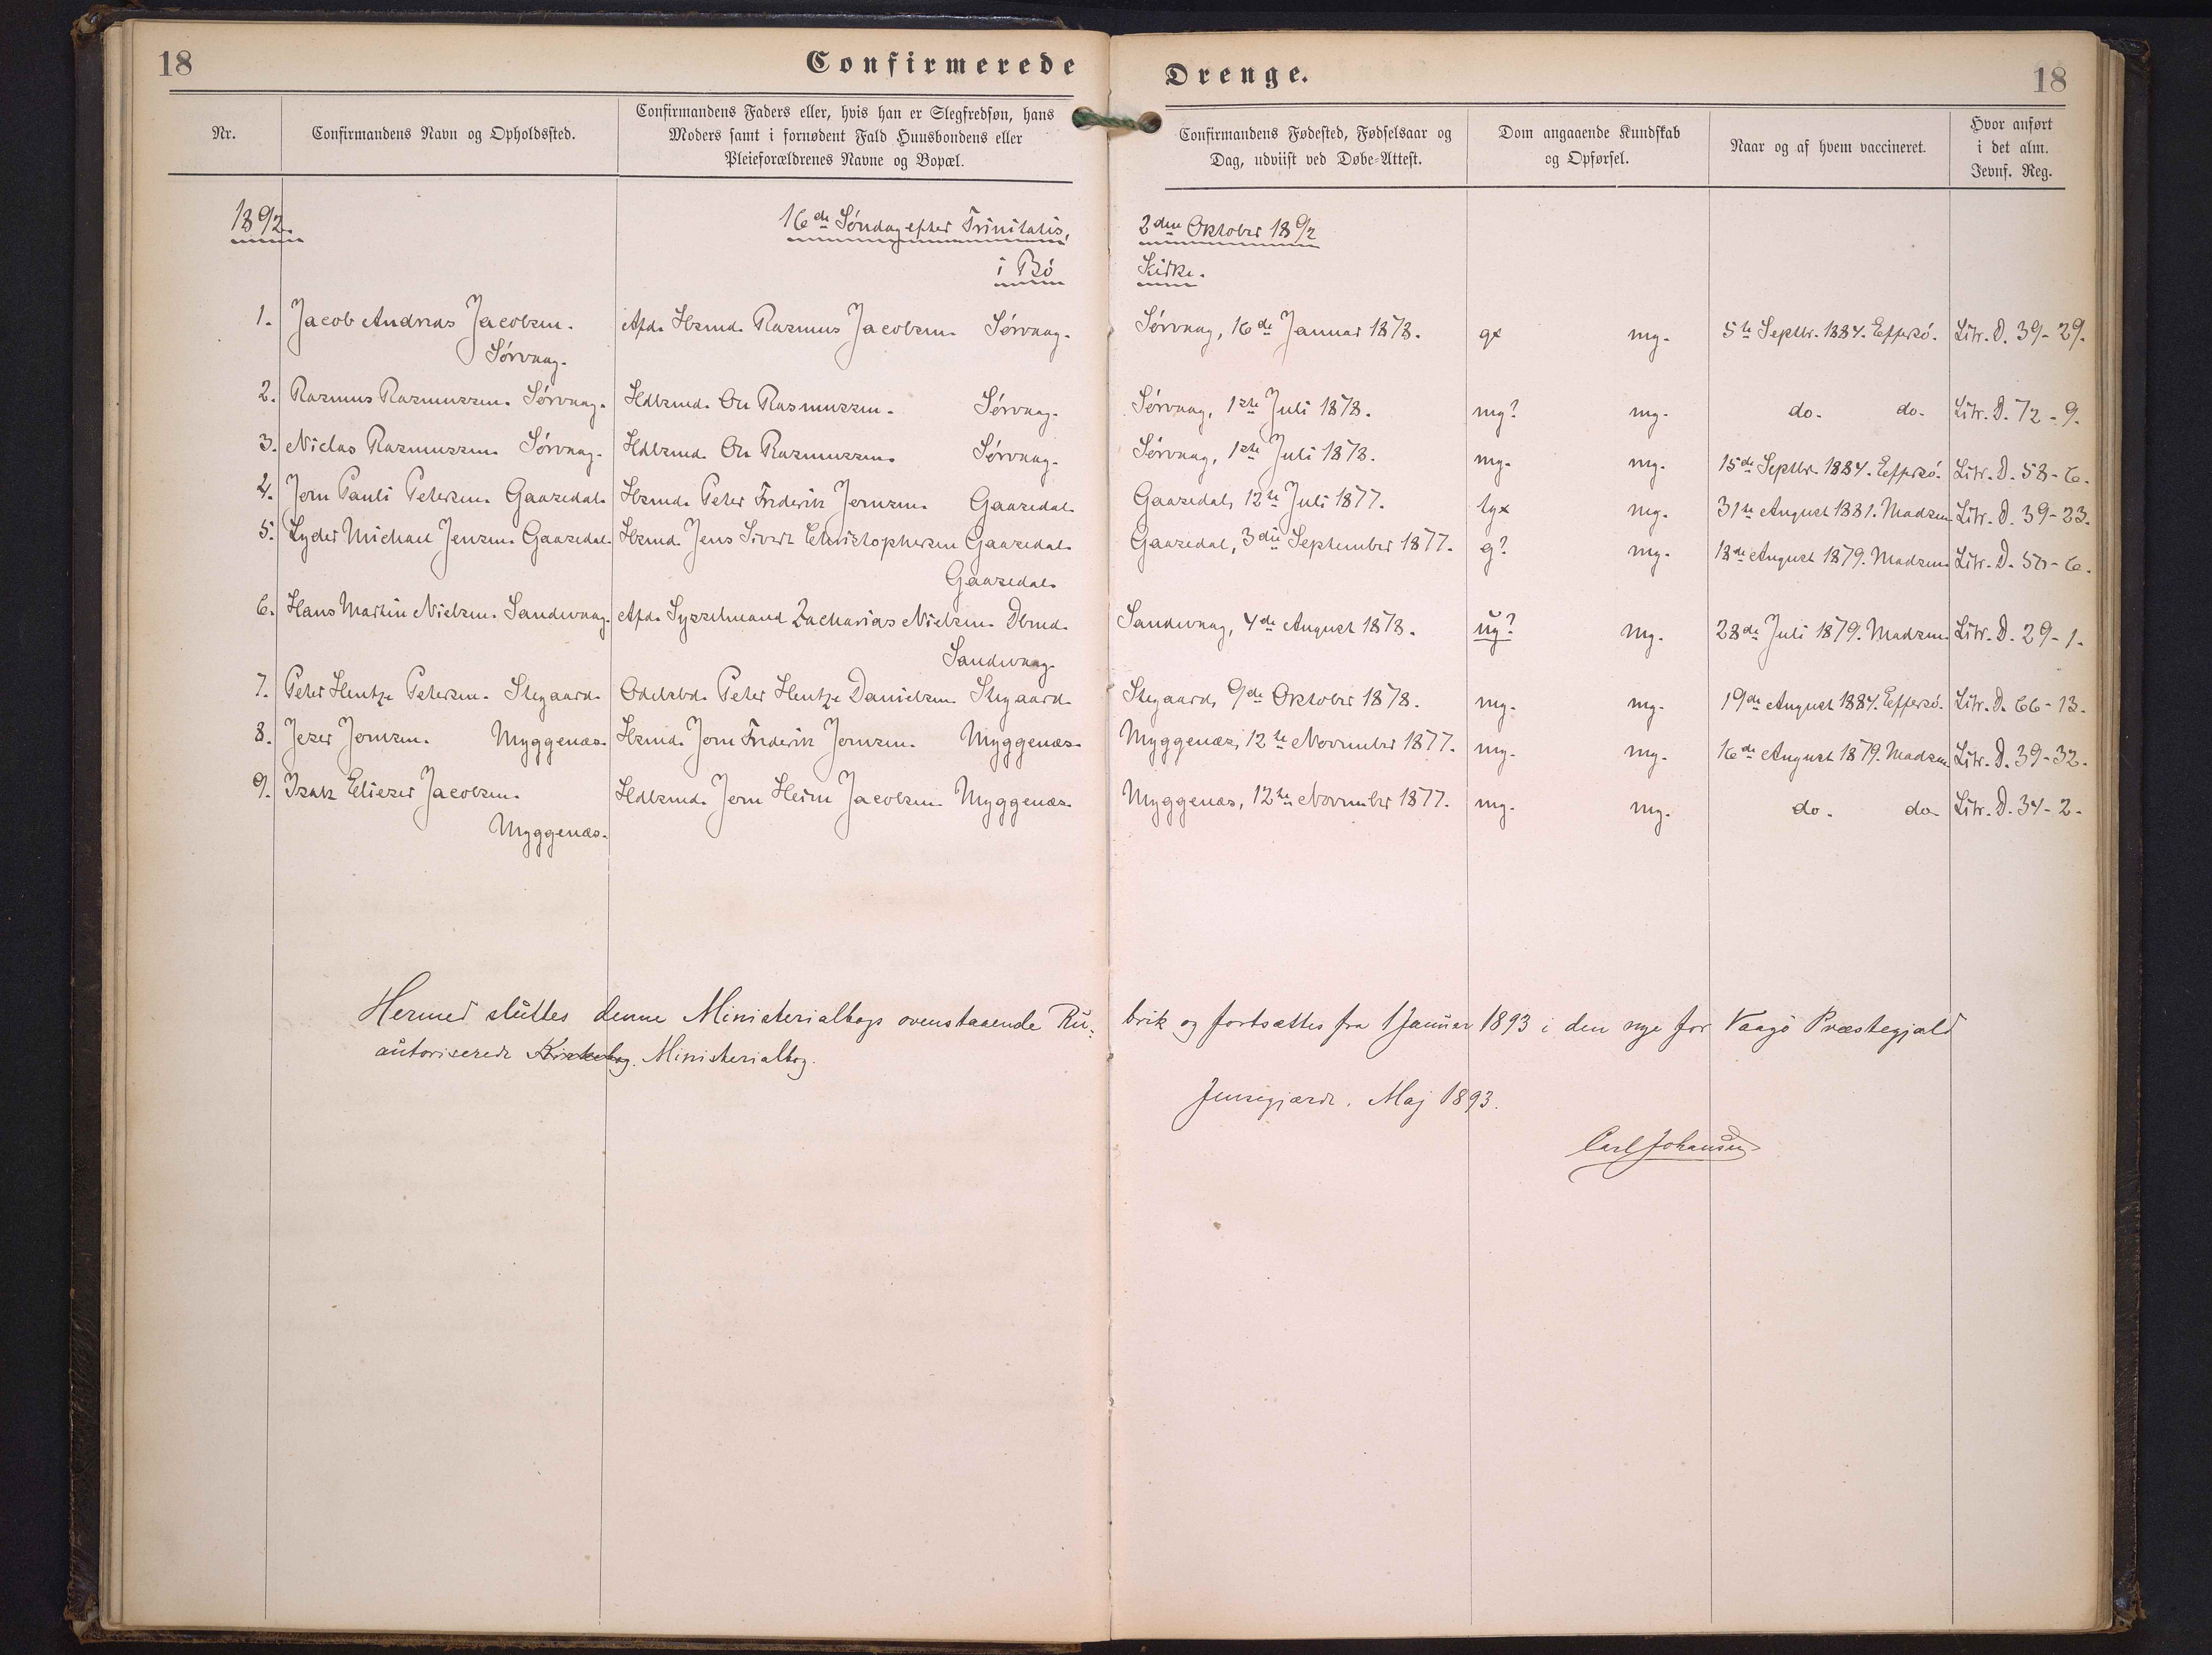 18
Confirmerede Drenge.
18
Nr.
Confirmandens Navn og Opholdssted.
Confirmandens Faders eller, hvis han er Slegfredsøn, hans
Moders samt i fornødent Fald Huusbondens eller
Pleieforældrenes Navne og Bopæl.
Confirmandens Fødested, Fødselsaar og
Dag, udviist ved Døbe-Attest.
Dom angaaende Kundskab
og Opførsel.
Naar og af hvem vaccineret.
Hvor anført
i det alm.
Jevnf. Reg.
1892. 16de Søndag efter Trinitatis, 2den Oktober 1892
i Bø Kirke.
1. Jacob Andreas Jacobsen. Afd. Hsmd. Rasmus Jacobsen. Sørvaag. Sørvaag, 16de Januar 1878. g× mg. 5te Septbr. 1884. Effersø. Litr. D. 39-29.
Sørvaag.
2. Rasmus Rasmussen. Sørvaag. Hdlsmd. Ole Rasmussen. Sørvaag. Sørvaag, 1ste Juli 1878. mg? mg. do. do. Litr. D. 72-9.
3. Niclas Rasmussen. Sørvaag. Hdlsmd. Ole Rasmussen. Sørvaag. Sørvaag, 1ste Juli 1878. mg. mg. 15de Septbr. 1884. Effersø. Litr. D. 58-6.
4. Joen Pauli Petersen. Gaasedal. Hsmd. Peter Frederik Joensen. Gaasedal. Gaasedal, 12te Juli 1877. tg× mg. 31te August 1881. Madsen. Litr. D. 39-23.
5. Lyder Michael Jensen. Gaasedal. Hsmd. Jens Sivert Christophersen Gaasedal. Gaasedal, 3die September 1877. g? mg. 18de August 1879. Madsen. Litr. D. 50-6.
Gaasedal.
6. Hans Martin Nielsen. Sandevaag. Afd. Sysselmand Zacharias Nielsen. Dbmd. Sandevaag, 4de August 1878. ug? mg. 28de Juli 1879. Madsen. Litr. D. 29-1.
Sandevaag.
7. Peter Hentze Petersen. Stegaard. Odelsbd. Peter Hentze Danielsen. Stegaard. Stegaard, 9de Oktober 1878. mg. mg. 19de August 1884. Effersø. Litr. D. 66-13.
8. Jeser Joensen. Myggenæs. Hsmd. Joen Frederik Joensen. Myggenæs. Myggenæs, 12te November 1877. mg. mg. 16de August 1879. Madsen. Litr. D. 39-32.
9. Isak Elieser Jacobsen. Hdlsmd. Joen Heine Jacobsen. Myggenæs. Myggenæs, 12te November 1877. mg. mg. do. do. Litr. D. 34-2.
Myggenæs.
Hermed sluttes denne Ministerialbogs ovenstaaende Ru-brik og fortsættes fra 1 Januar 1893 i den nye for Vaagø Præstegjæld
autoriserede Kirkebog. Ministerialbog.
Jensegjærde. Maj 1893.
Carl Johansen